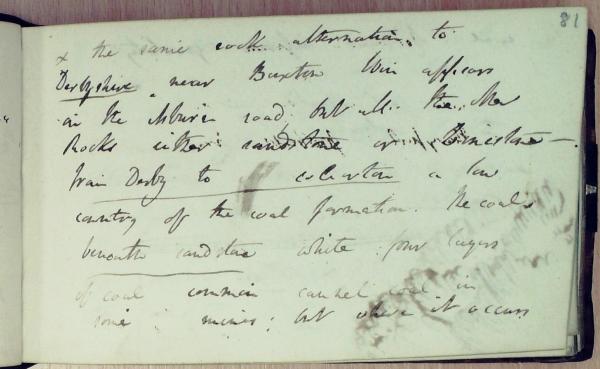 81
& the same rock alternation to
Derbyshire near Buxton this appears
in the road but all the other
Rocks either sandstone or limestone —.
from Derby to a low
country of the coal formation. The coal is
beneath sandstone white four layers
of coal common cannel coal in
some mines; but where it occurs